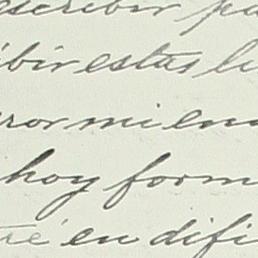 escribir pa
ibir estas l
ror mi en
hoy form
ré en difi